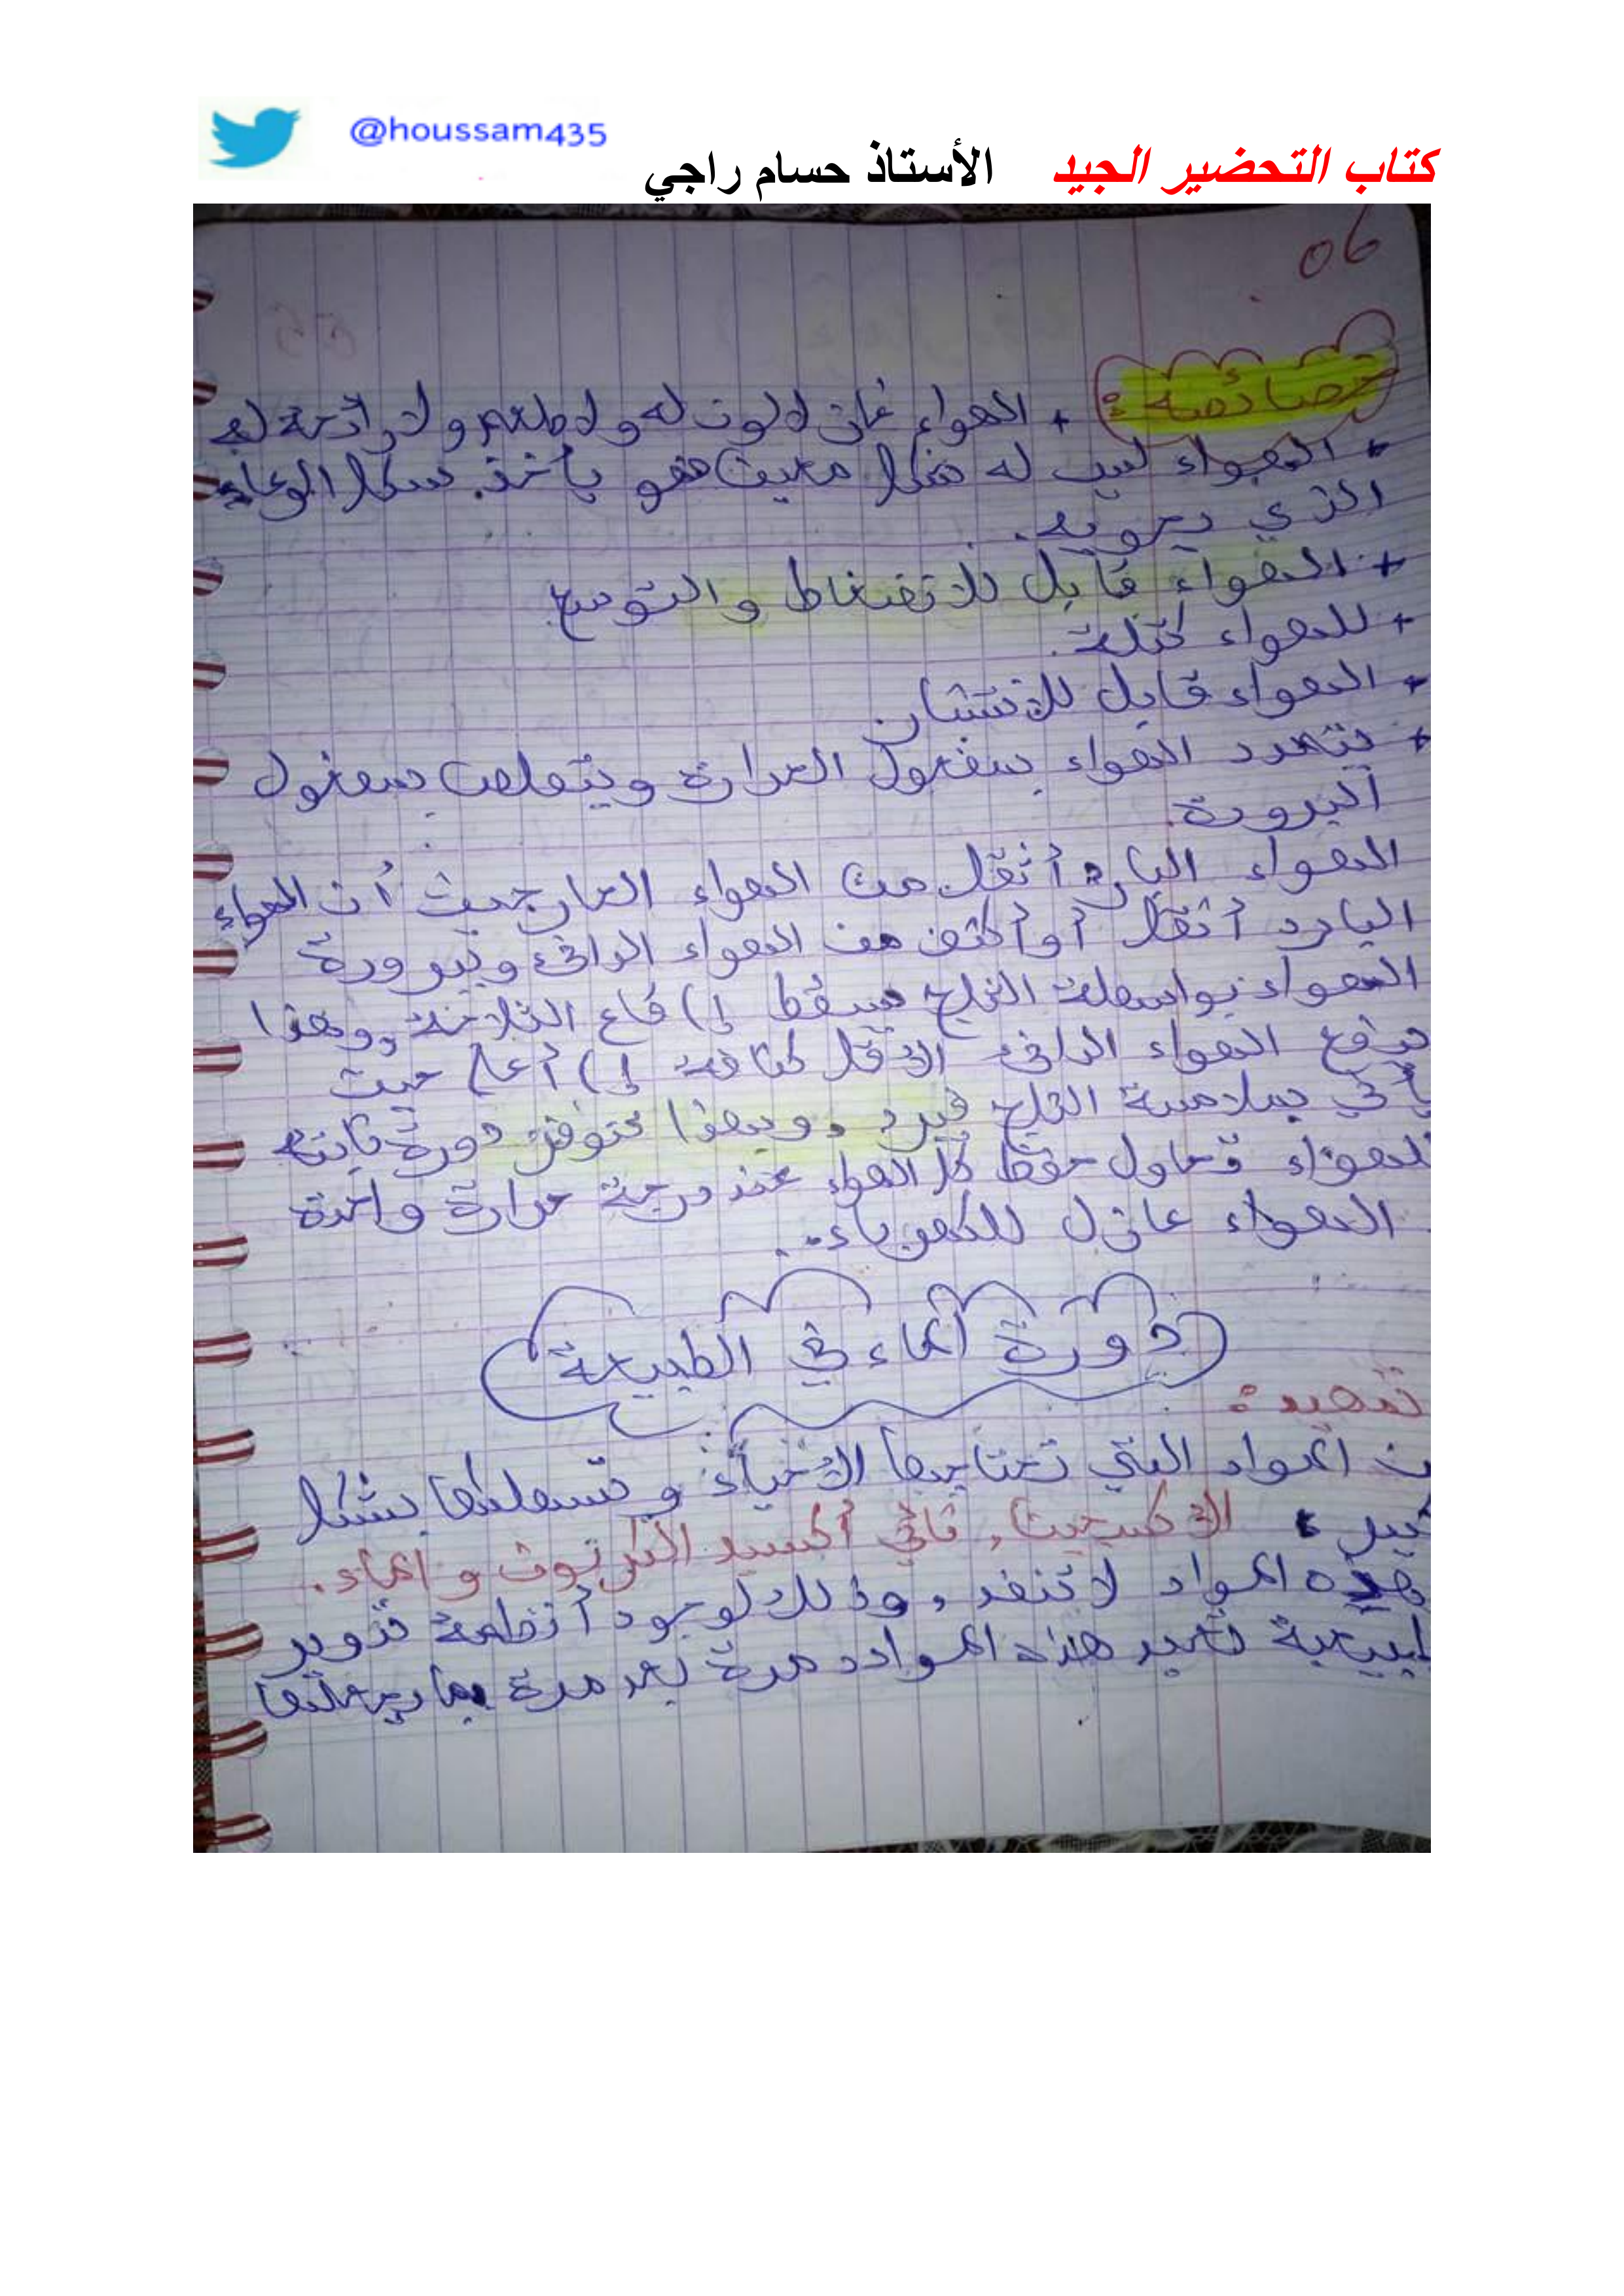 @houssam435
كتاب التحضير الجيد الأستاذ حسام راجي
06
خصائصه :
+ الهواء غاز لا لون له ولا طعم ولا رائحة له
+ الهواء ليس له شكل معين فهو يأخذ شكل الوعاء
الذي يحويه.
+ الهواء قابل للانضغاط والتوسع
+ للهواء كتلة.
+ الهواء قابل للانتشار.
+ يتمدد الهواء بمفعول الحرارة ويتقلص بمفعول
البرودة.
الهواء البارد أثقل من الهواء الحار حيث أن الهواء
البارد أثقل أو أكثف من الهواء الدافئ وببرودة
الهواء بواسطة الثلج يسقط إلى قاع الثلاجة، وهذا
يدفع الهواء الدافئ الأقل كثافة إلى أعلى حيث
يأتي بملامسة الثلج فيبرد، وبهذا تتوفر دورة ثابتة
للهواء تحاول حفظ كل الهواء عند درجة حرارة واحدة
الهواء عازل للكهرباء..
دورة الماء في الطبيعة
تمهيد :
من المواد التي تحتاجها الأحياء وتستهلكها بشكل
كبير، الأكسجين، ثاني أكسيد الكربون والماء.
هذه المواد لا تنفد، وذلك لوجود أنظمة تدوير
طبيعية تعيد هذه المواد مرة بعد مرة مما يجعلها